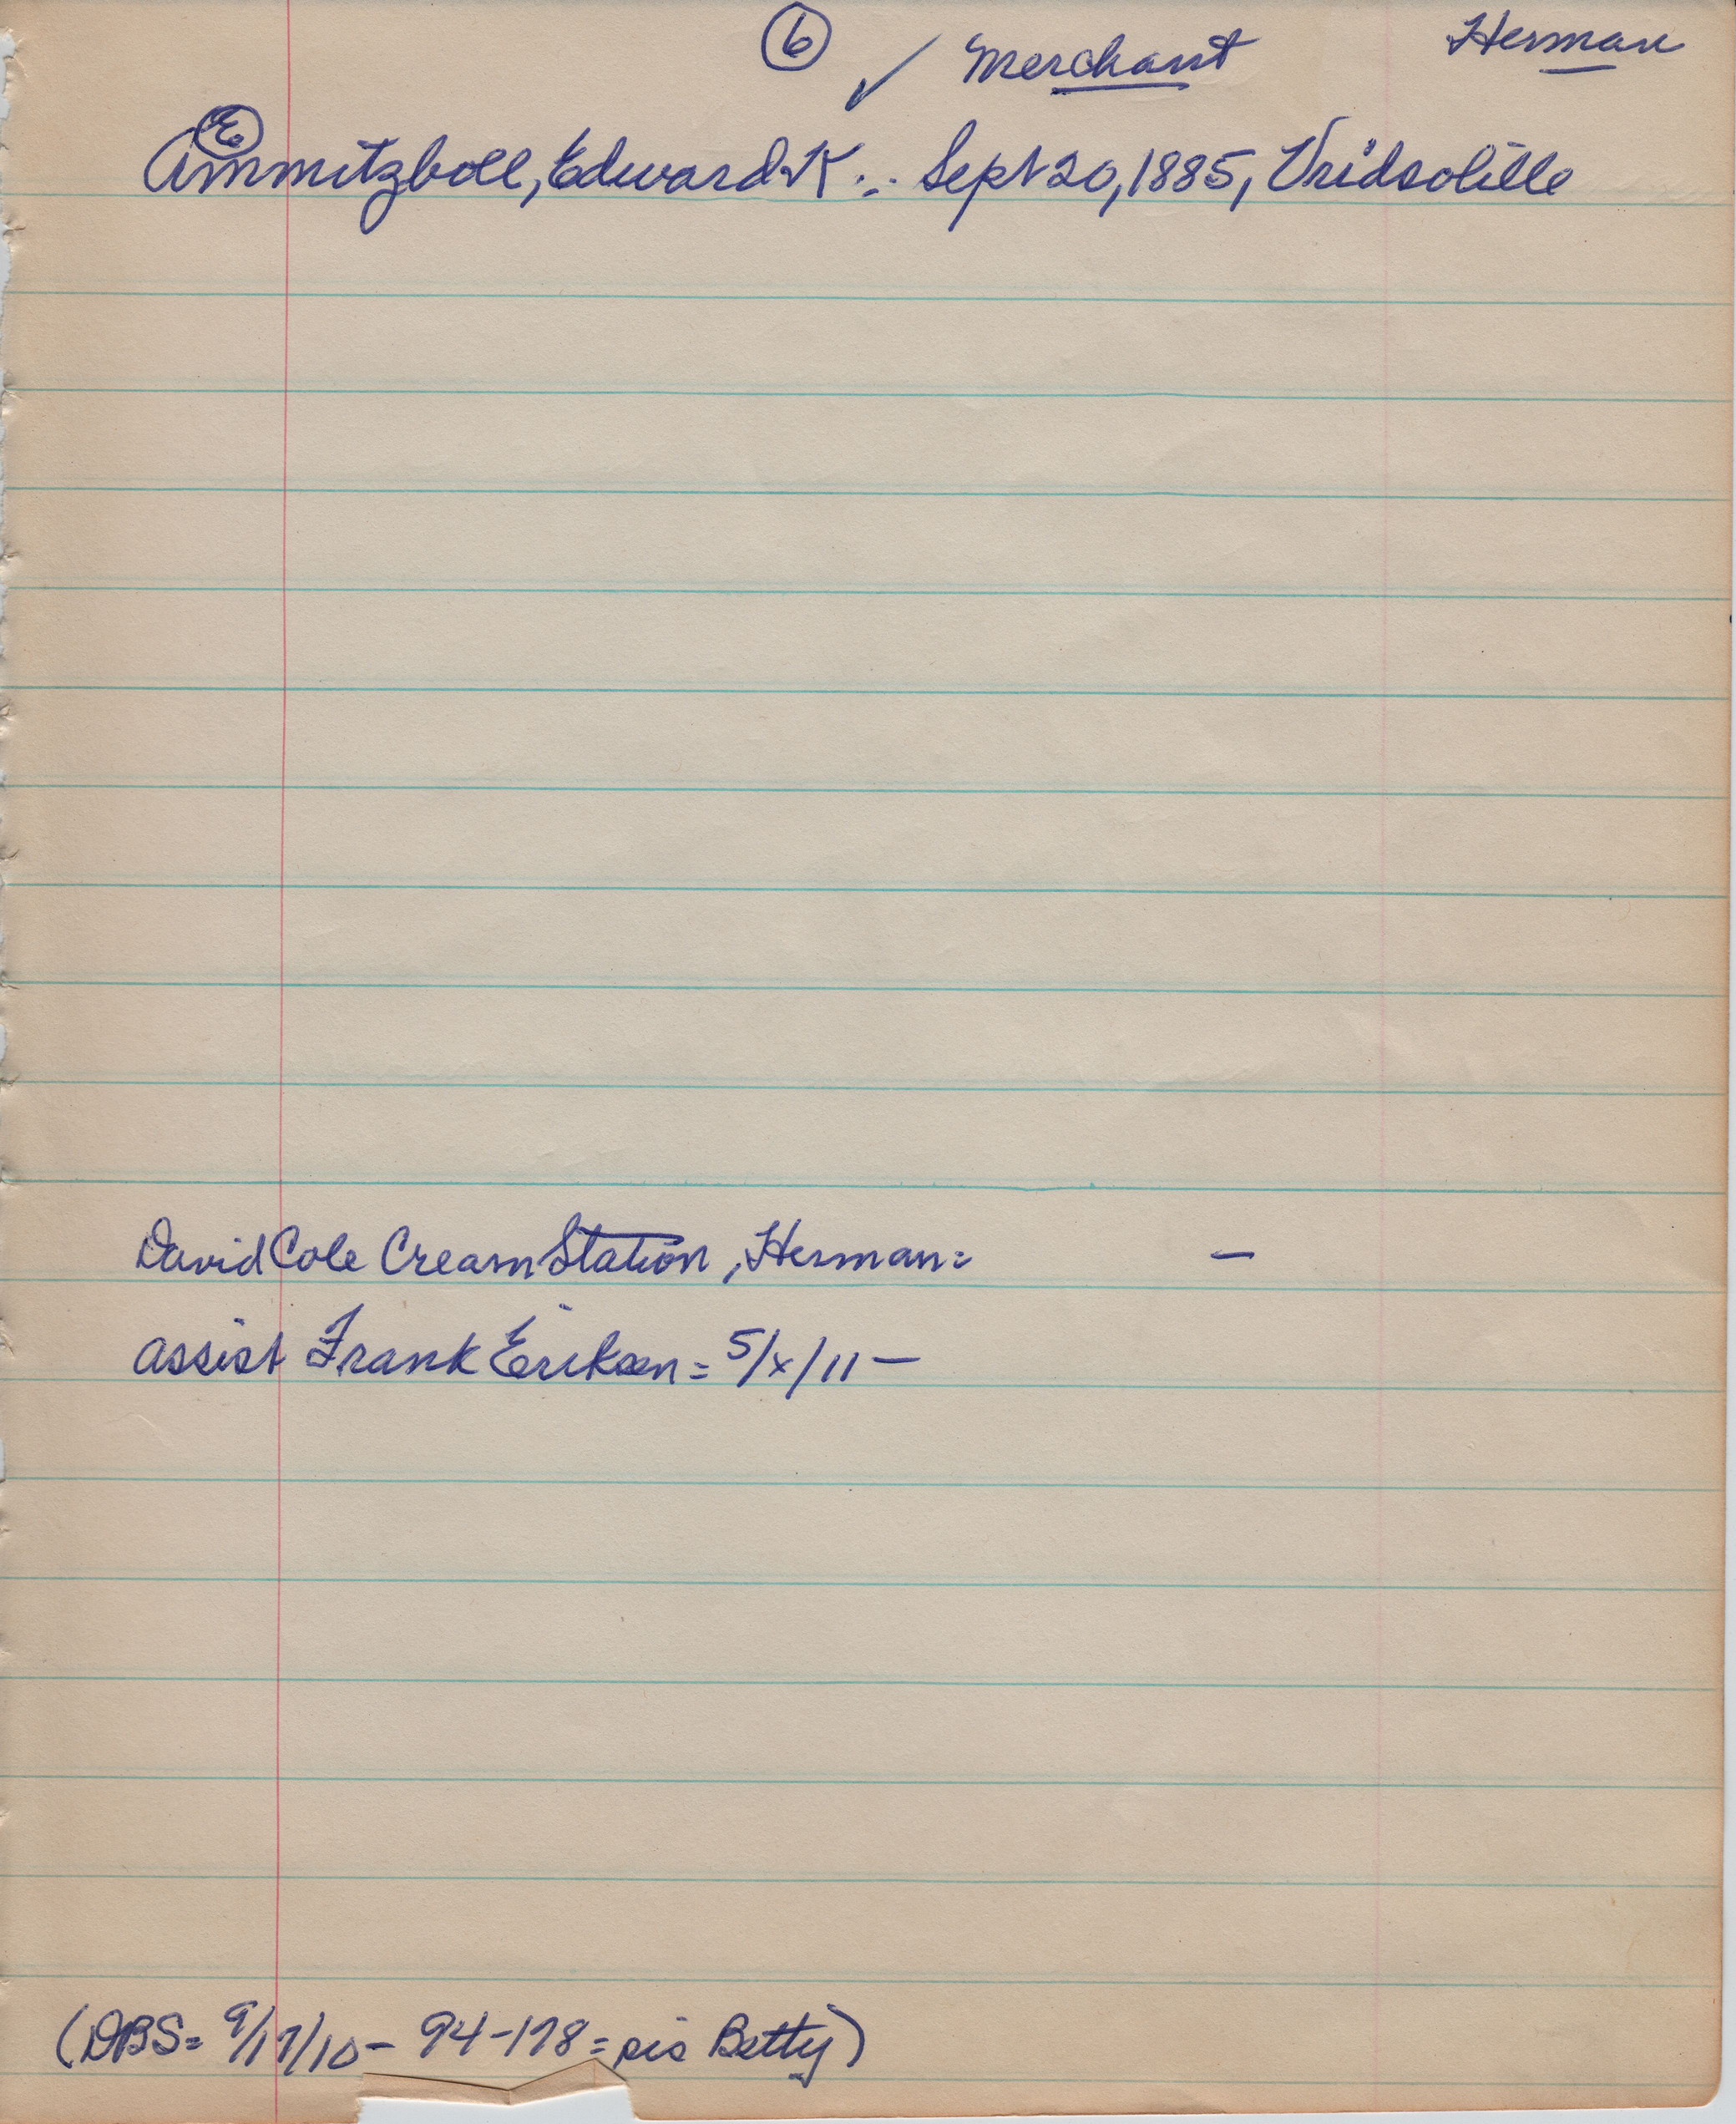 6 ✓ Merchant Herman
E
Ammitzboll, Edward K.:. Sept 20, 1885, Vridsolille
David Cole Cream Station, Herman=  —
assist Frank Eriksen = 5/x/11 —
(DBS= 9/17/10 - 94-178 = sis Betty)